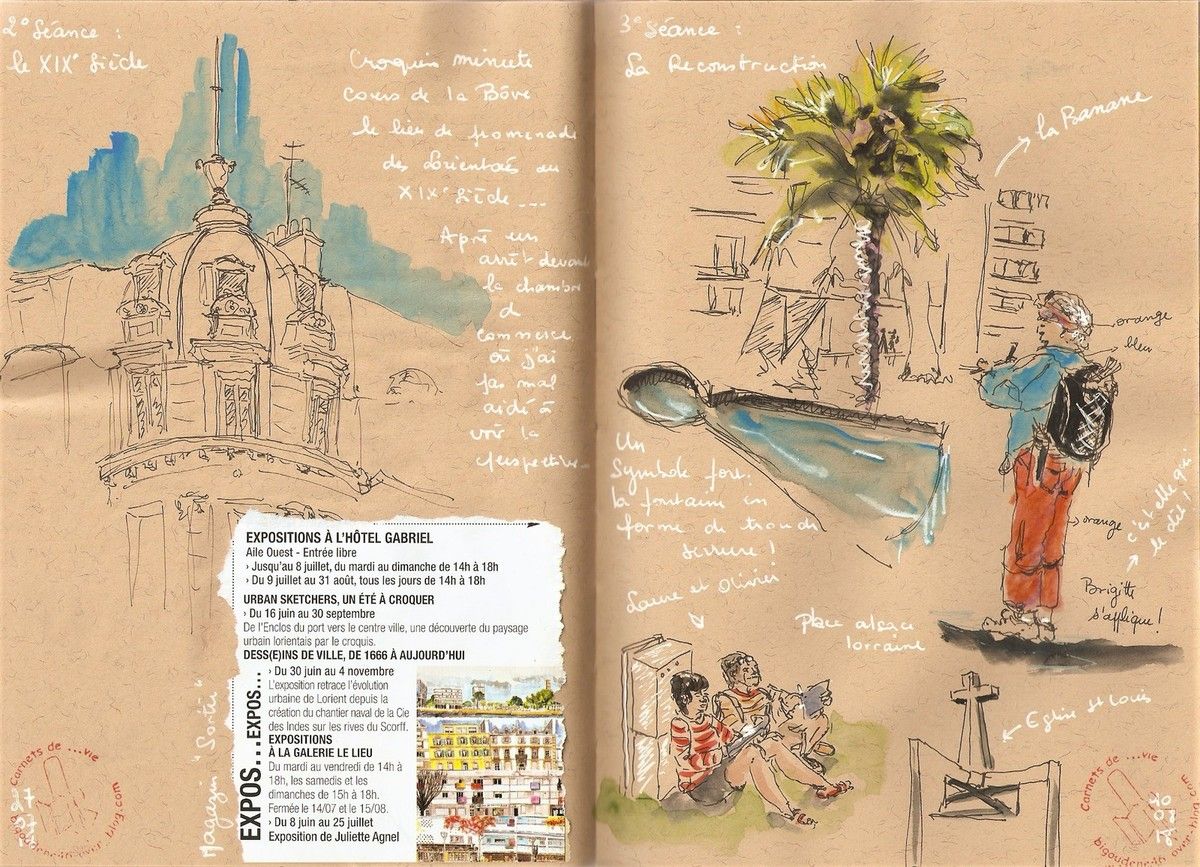 2e Séance :
le XIXe Siècle
Croquis minute
cours de la Bôve
le lieu de promenade
des Lorientais au
XIXe siècle...
Après un
arrêt devant
la chambre
de
commerce
où j'ai
pas mal
aidé à
voir la
perspective...
EXPOSITIONS À L'HÔTEL GABRIEL
Aile Ouest - Entrée libre
› Jusqu'au 8 juillet, du mardi au dimanche de 14h à 18h
› Du 9 juillet au 31 août, tous les jours de 14h à 18h
URBAN SKETCHERS, UN ÉTÉ À CROQUER
› Du 16 juin au 30 septembre
De l'Enclos du port vers le centre ville, une découverte du paysage
urbain lorientais par le croquis.
DESS(E)INS DE VILLE, DE 1666 À AUJOURD'HUI
› Du 30 juin au 4 novembre
L'exposition retrace l'évolution
urbaine de Lorient depuis la
création du chantier naval de la Cie
des Indes sur les rives du Scorff.
EXPOSITIONS
À LA GALERIE LE LIEU
Du mardi au vendredi de 14h à
18h, les samedis et les
dimanches de 15h à 18h.
Fermée le 14/07 et le 15/08.
› Du 8 juin au 25 juillet
Exposition de Juliette Agnel
EXPOS...EXPOS...
Magazin "Sortir"
Carnets de ...vie
3e Séance :
La Reconstruction
la Banane
orange
bleu
orange
c'est elle qui
le dit !
Brigitte
s'applique !
Un
Symbole fort.
la fontaine en
forme de trou de
serrure !
Laure et Olivier
Place alsace
lorraine
Eglise St Louis
Carnets de ...vie